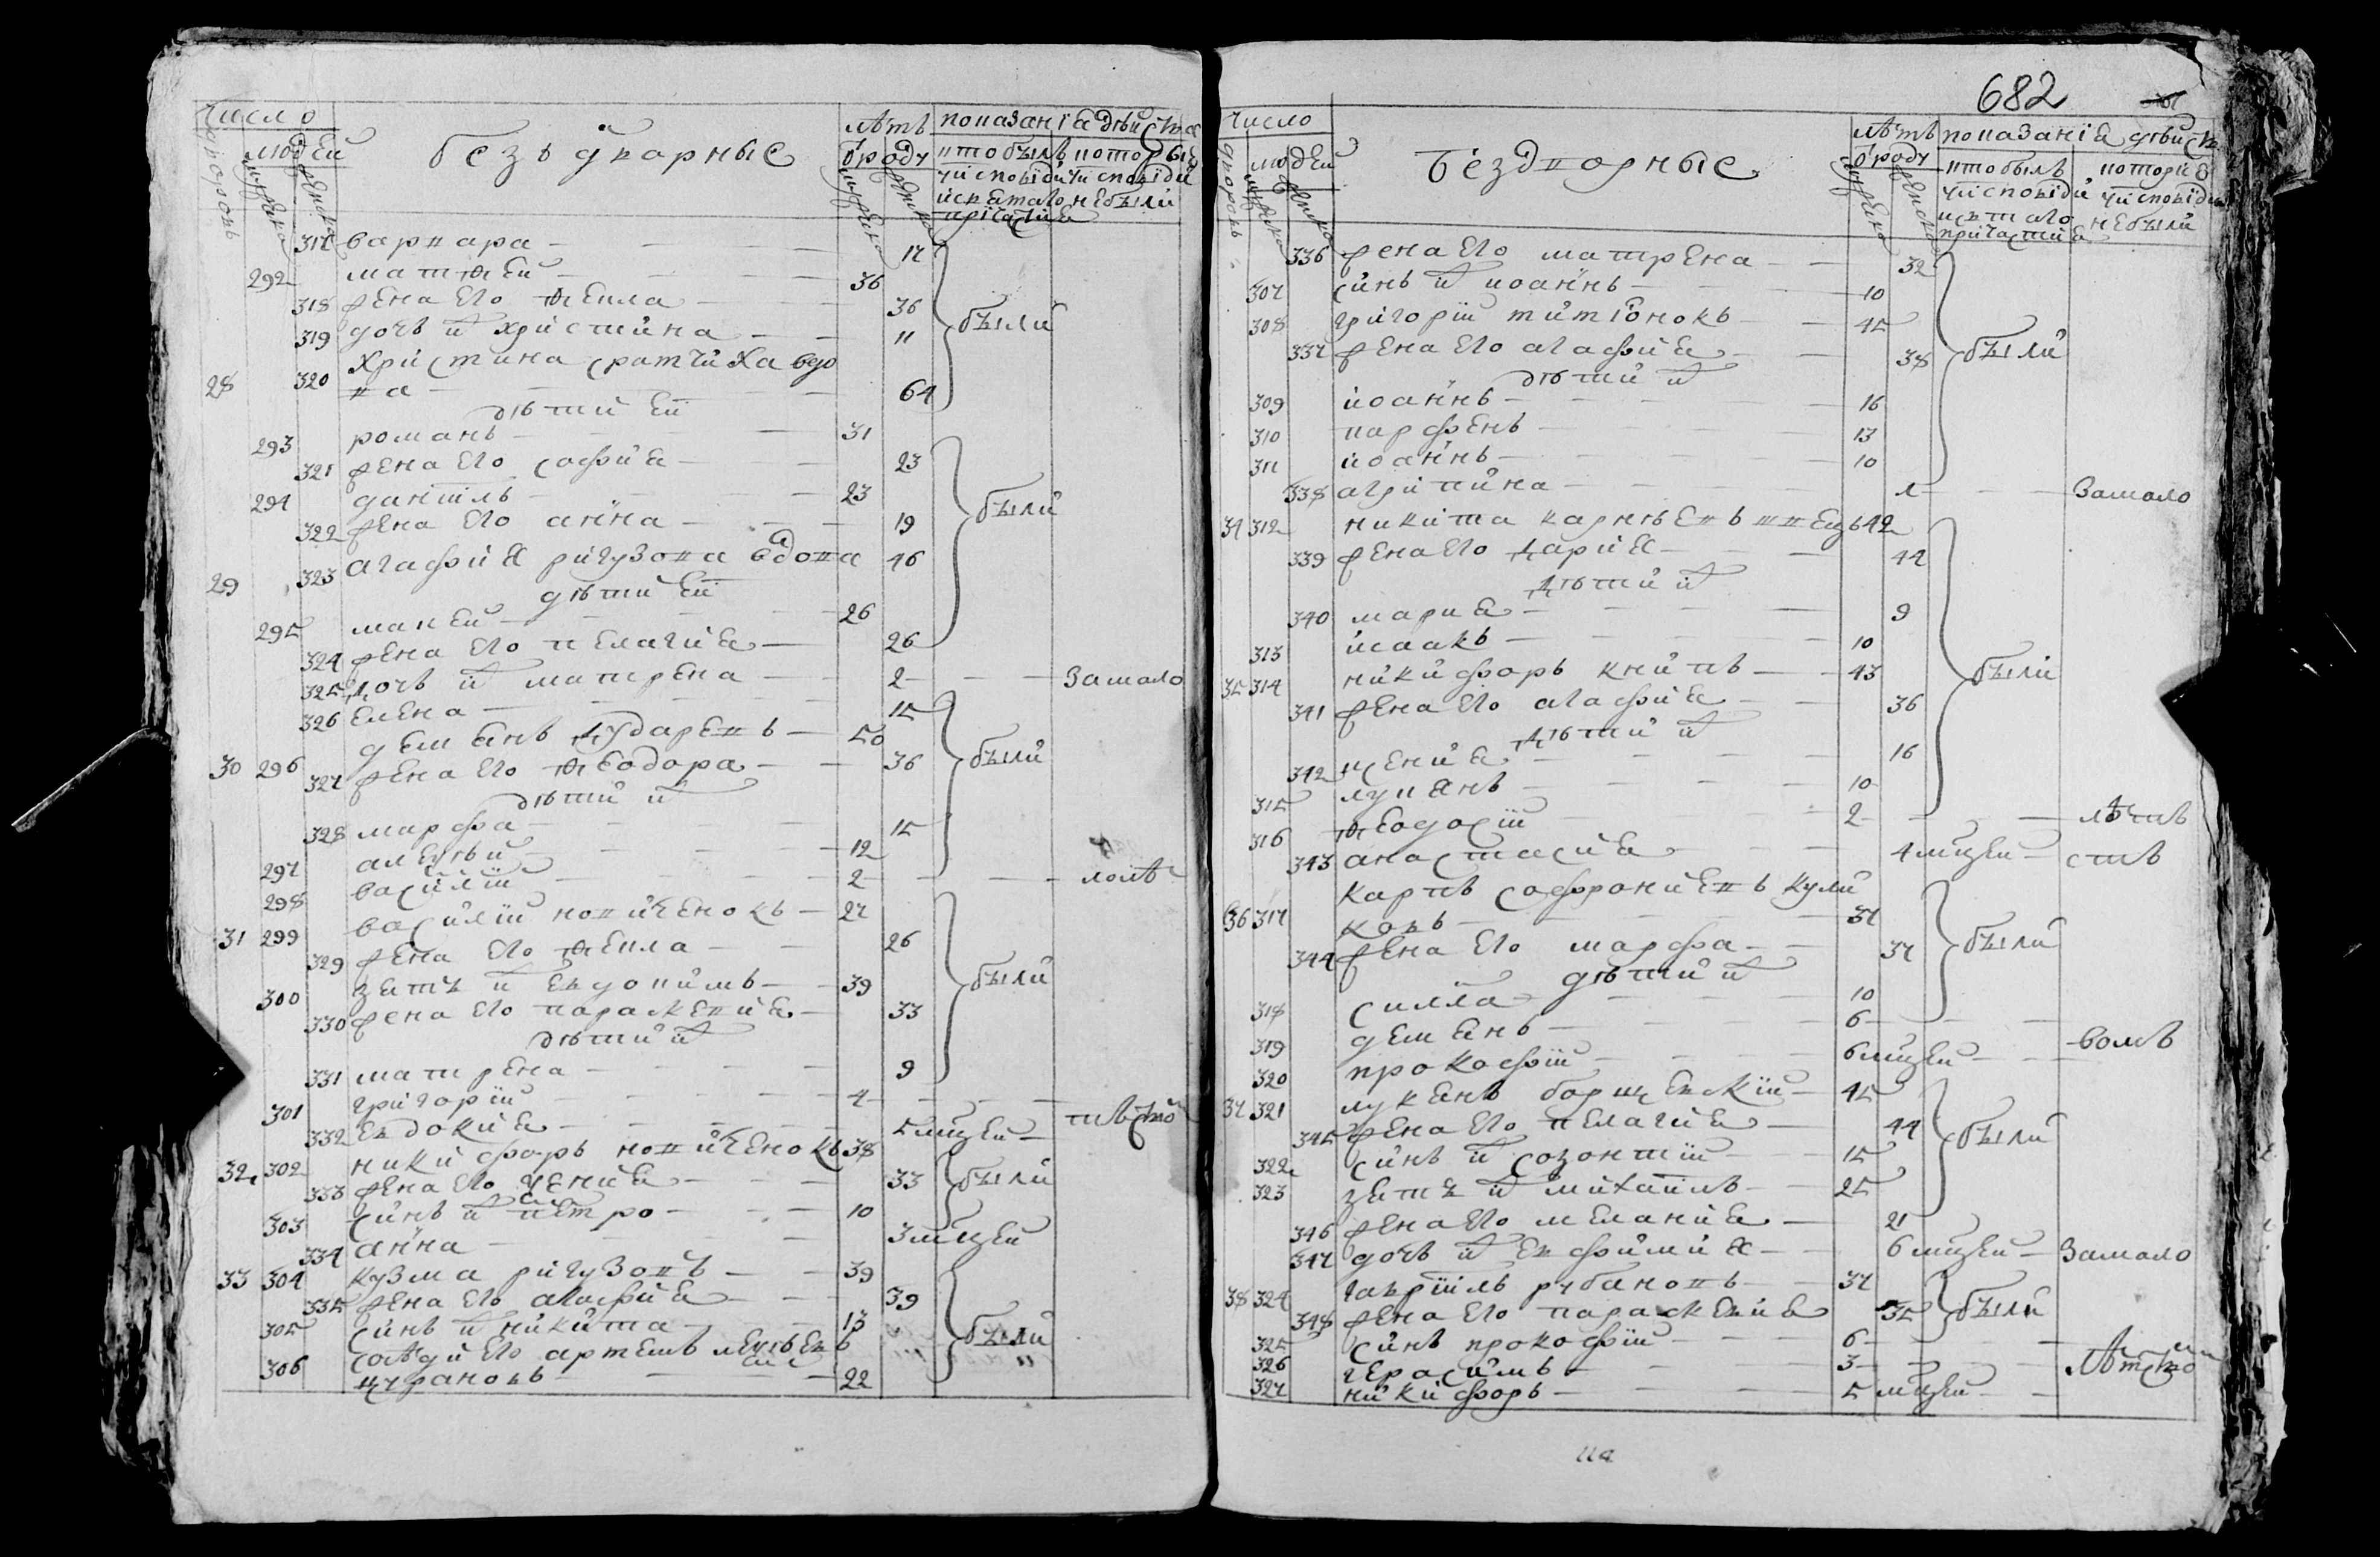 число
людей
дворовъ
мужеска
женска
безъдворные
лѣтъ
ѿроду
мужеска
женска
показанїя дѣйства
кто былъ
у исповѣди
и святаго
причастия
которые
у исповѣди
небыли
317 варвара — 17
292 матѳей — 36
318 жена его ѳекла — 36
319 дочь их христина — 11 были
христина сратчиха вдо
28 320 ва — 64
дѣти ей
293 романъ — 31
321 жена его софия — 23
294 данїилъ — 23 были
322 жена его анна — 19
29 323 агафия ригузова вдова 46
дѣти ей
295 макей — 26
324 жена его пелагия — 26
325 дочь их матрена — 2 — Замало
326 елена — 15
30 296 демянъ дударевъ — 50
327 жена его ѳеодора — 36 были
дѣти их
328 марфа — 15
297 алексѣй — 12
298 василїй — 2 — молѣ
31 299 василїй новиченокъ — 27
329 жена его ѳекла — 26
300 зять их евдокимъ — 39 были
330 жена его параскевия — 33
дѣти их
331 матрена — 9
301 григорїй — 4
332 евдокия — 5 мцей — тѣство
32 302 никифоръ новиченокъ 38
333 жена его ксения — 33 были
303 синъ их петро — 10
334 анна — 3 мцей
33 304 кузма ригузовъ — 39
335 жена его агафия — 39
305 синъ их никита — 13 были
сосѣди его артемъ алексѣевъ
306 щурановъ — 22
682
число
людей
дворовъ
мужеска
женска
бездворные
лѣтъ
ѿроду
мужеска
женска
показанїя дѣйств
кто былъ
у исповѣди
и святаго
причастия
которие
у исповѣди
небыли
336 жена его матрена — 32
307 синъ их иоаннъ — 10
308 григорїй титїонокъ — 45
337 жена его агафия — 38 были
дѣти их
309 иоаннъ — 16
310 парфенъ — 13
311 иоаннъ — 10
338 агрипина — 1 — Замало
34 312 никита карнѣевъ швецъ 42
339 жена его дария — 44
дѣти их
340 мария — 9
313 исаакъ — 10
35 314 никифоръ книпъ — 43 были
341 жена его агафия — 36
дѣти их
342 ксения — 16
315 лукянъ — 10
316 ѳеодосїй — 2 — лѣтъ
343 анастасия — 4 мцей — ствъ
карпъ софрониевъ кули
36 317 ковъ — 37
344 жена его марфа — 37 были
дѣти их
318 силла — 10
319 демянъ — 6
320 прокофїй — 6 мцей — волѣ
37 321 лукянъ борщевский — 45
345 жена его пелагия — 44 были
322 синъ их созонтїй — 15
323 зять их михаилъ — 25
346 жена его мелания — 21
347 дочь их евфимия — 6 мцей — Замало
38 324 гаврїилъ рубановъ — 37
348 жена его параскевия 35 были
325 синъ прокофїй — 6
326 герасимъ — 3 — Лѣтство
327 никифоръ — 5 мцей